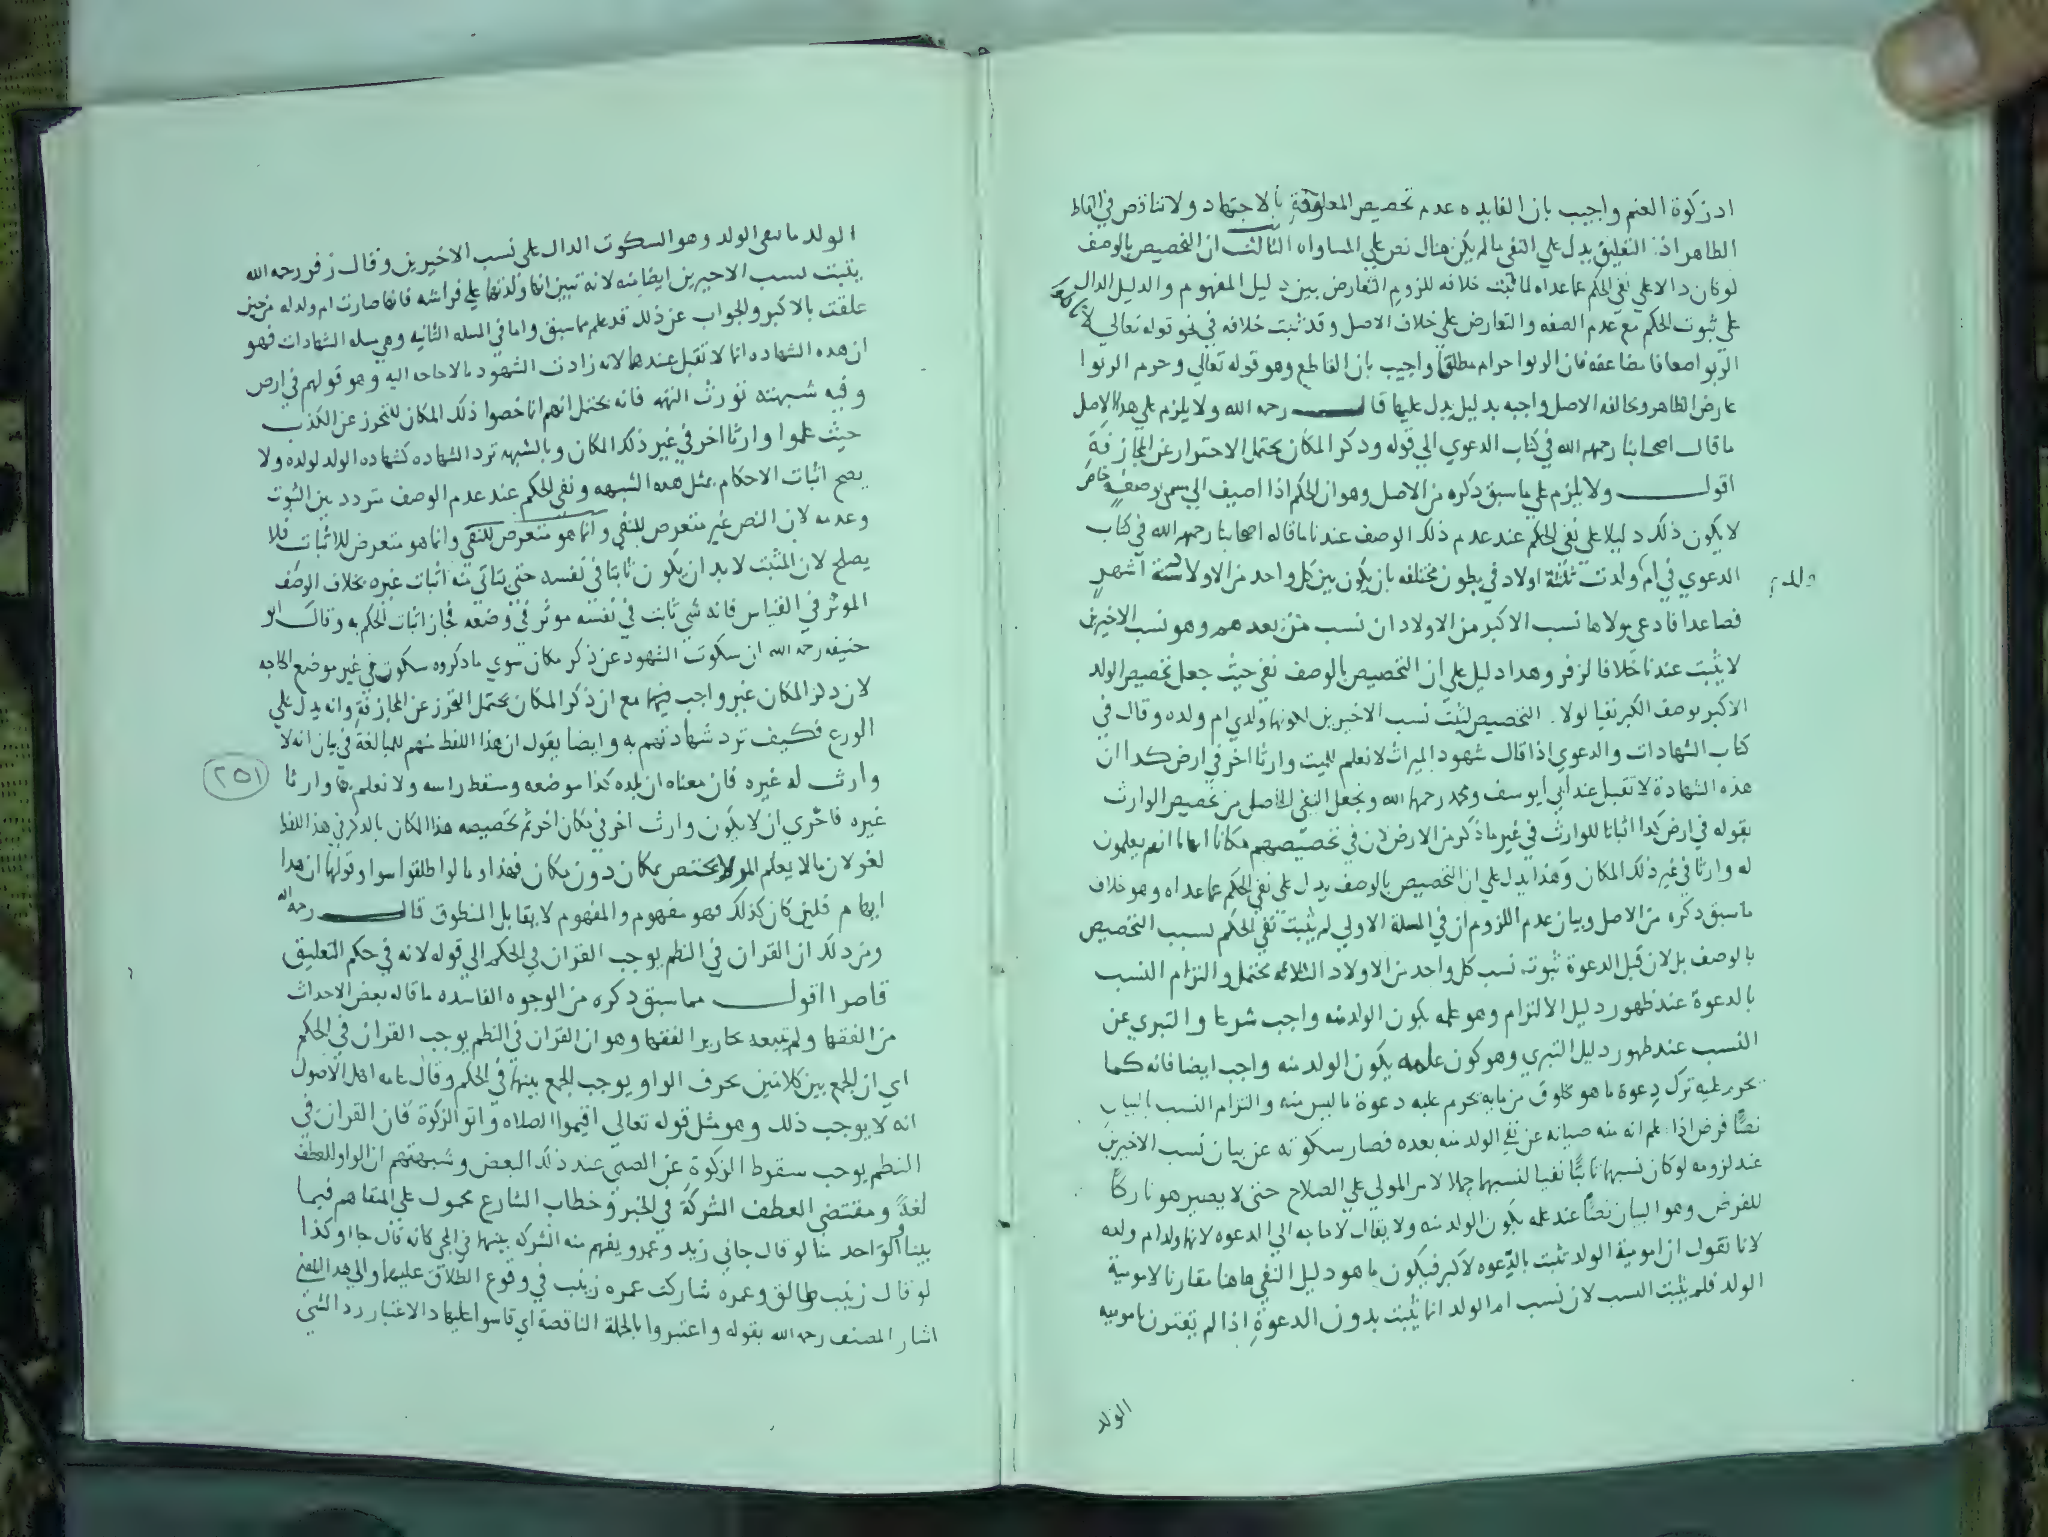 اد زكوة الغنم واجيب بان الفايده عدم تخصيص المعلوفة بالاجتهاد ولا تناقض في
الظاهر اذ التعليق يدل علي النفي مالم يكن هناك نص علي المساواه الثالث ان التخصيص بالوصف
لو كان دالا علي نفي الحكم عما عداه لما ثبت خلافه للزوم التعارض بين دليل المفهوم والدليل الدال
علي ثبوت الحكم مع عدم الصفه والتعارض علي خلاف الاصل وقد ثبت خلافه في نحو قوله تعالي لا تاكلوا
الربوا اضعافا مضاعفه فان الربوا حرام مطلقا واجيب بان القاطع وهو قوله تعالي وحرم الربوا
عارض الظاهر ومخالفه الاصل واجبه بدليل يدل عليها قال رحمه الله ولا يلزم علي هذا الاصل
ما قال اصحابنا رحمهم الله في كتاب الدعوي الي قوله وذكر المكان يحتمل الاحتراز عن المجازفة
اقول ولا يلزم علي ما سبق ذكره من الاصل وهو ان الحكم اذا اضيف الي مسمي بوصف خاص
لا يكون ذلك دليلا علي نفي الحكم عند عدم ذلك الوصف عندنا ما قاله اصحابنا رحمهم الله في كتاب
الدعوي في ام ولدت ثلثة اولاد في بطون مختلفه بان يكون بين كل واحد من الاولاد ستة اشهر
فصاعدا فادعي مولاها نسب الاكبر من الاولاد ان نسب من بعدهم وهو نسب الاخيرين
لا يثبت عندنا خلافا لزفر وهذا دليل علي ان التخصيص بالوصف نفي حيث جعل تخصيص الولد
الاكبر بوصف الكبر نفيا لولا التخصيص لثبت نسب الاخيرين لكونهما ولدي ام ولده وقال في
كتاب الشهادات والدعوي اذا قال شهود الميراث لا نعلم للميت وارثا اخر في ارض كذا ان
هذه الشهادة لا تقبل عند ابي يوسف ومحمد رحمهما الله وبجعل النفي الحاصل من تخصيص الوارث
بقوله في ارض كذا اثباتا للوارث في غير ما ذكر من الارض لان في تخصيصهم مكانا ايهاما انهم يعلمون
له وارثا في غير ذلك المكان وهذا يدل علي ان التخصيص بالوصف يدل علي نفي الحكم عما عداه وهو خلاف
ما سبق ذكره من الاصل وبيان عدم اللزوم ان في المسلة الاولي لم يثبت نفي الحكم لسبب التخصيص
بالوصف بل لان قبل الدعوة ثبوت نسب كل واحد من الاولاد الثلاثه محتمل والتزام النسب
بالدعوة عند ظهور دليل الالتزام وهو علمه بكون الولد منه واجب شرعا والتبري عن
النسب عند ظهور دليل التبري وهو كون علمه يكون الولد منه واجب ايضا فانه كما
يحرم عليه ترك دعوة ما هو مخلوق من مايه يحرم عليه دعوة ما ليس منه والتزام النسب بالبيان
نصًا فرض اذا علم انه منه صيانه عن نفي الولد منه بعده فصار سكوته عن بيان نسب الاخيرين
عند لزومه لو كان نسبهما ثابتًا نفيا لنسبهما حملا لامر المولي علي الصلاح حتي لا يصير هو تاركًا
للفرض وهو البيان نصًا عند علمه بكون الولد منه ولا يقال لا حاجه الي الدعوه لانهما ولدا ام ولده
لانا نقول ان امومية الولد تثبت بالدعوه لاكبر فيكون ما هو دليل النفي هاهنا مقارنا لامومية
الولد فلم يثبت النسب لان نسب ام الولد انما يثبت بدون الدعوة اذا لم يقترن باموميه
الولد
الولد ما نفي الولد وهو السكوت الدال علي نسب الاخيرين وقال زفر رحمه الله
يثبت نسب الاخيرين ايضا منه لانه تبين انها ولدتهما علي فراشه فانها صارت ام ولد له من حين
علقت بالاكبر والجواب عن ذلك قد علم مما سبق واما في المسله الثانيه وهي مسله الشهادات فهو
ان هذه الشهاده انما لا تقبل عندهما لانه زادت الشهود بما لا حاجه اليه وهو قولهم في ارض
وفيه شبهته تورث التهمه فانه يحتمل انهم انما خصوا ذلك المكان للتحرز عن الكذب
حيث علموا وارثا اخر في غير ذلك المكان وبالشبهه ترد الشهاده كشهاده الوالد لولده ولا
يصح اثبات الاحكام بمثل هذه الشبهه ونفي الحكم عند عدم الوصف متردد بين الثبوت
وعدمه لان النص غير متعرض للنفي وانما هو متعرض للنفي وانما هو متعرض للاثبات فلا
يصلح لان المثبت لا بد ان يكون ثابتا في نفسه حتي يتاتي منه اثبات غيره بخلاف الوصف
الموثر في القياس فانه شي ثابت في نفسه موثر في وضعه فجاز اثبات الحكم به وقال ابو
حنيفه رحمه الله ان سكوت الشهود عن ذكر مكان سوي ما ذكروه سكون في غير موضع الحاجه
لان ذكر المكان غير واجب فيهما مع ان ذكر المكان يحتمل التحرز عن المجازفة وانه يدل علي
الورع فكيف ترد شهادتهم به وايضا يقول ان هذا اللفظ منهم للمبالغة في بيان انه لا
وارث له غيره فان معناه ان بلده كذا موضعه ومسقط راسه ولا نعلم بها وارثا
٢٥١
غيره فاحري ان لا يكون وارث اخر في مكان اخر ثم تخصيصه هذا المكان بالذكر في هذا اللفظ
لغو لان ما لا يعلم المر لا يختص بمكان دون مكان فهذا وما لوا طلقوا سوا وقولهما ان هذا
ايهام قلنا كان كذلك فهو مفهوم والمفهوم لا يقابل المنطوق قال رحمه الله
ومن ذلك ان القران في النظم يوجب القران في الحكم الي قوله لانه في حكم التعليق
قاصرا اقول مما سبق ذكره من الوجوه الفاسده ما قاله بعض الاحداث
من الفقها ولم يتبعه نحارير الفقها وهو ان القران في النظم يوجب القران في الحكم
اي ان الجمع بين كلامين بحرف الواو يوجب الجمع بينهما في الحكم وقال عامه اهل الاصول
انه لا يوجب ذلك وهو مثل قوله تعالي اقيموا الصلاه واتو الزكوة فان القران في
النظم يوجب سقوط الزكوة عن الصبي عند ذلك البعض وشبهتهم ان الواو للعطف
لغةً ومقتضي العطف الشركة في الخبر وخطاب الشارع محمول علي المتفاهم فيما
بيننا والواحد منا لو قال جاني زيد وعمرو يفهم منه الشركه بينهما في المجي كانه قال جااو كذا
لو قال زينب طالق وعمره شاركت عمره زينب في وقوع الطلاق عليهما والي هذا المعني
اشار المصنف رحمه الله بقوله واعتبروا بالجملة الناقصة اي قاسوا عليها د الاعتبار رد الشي